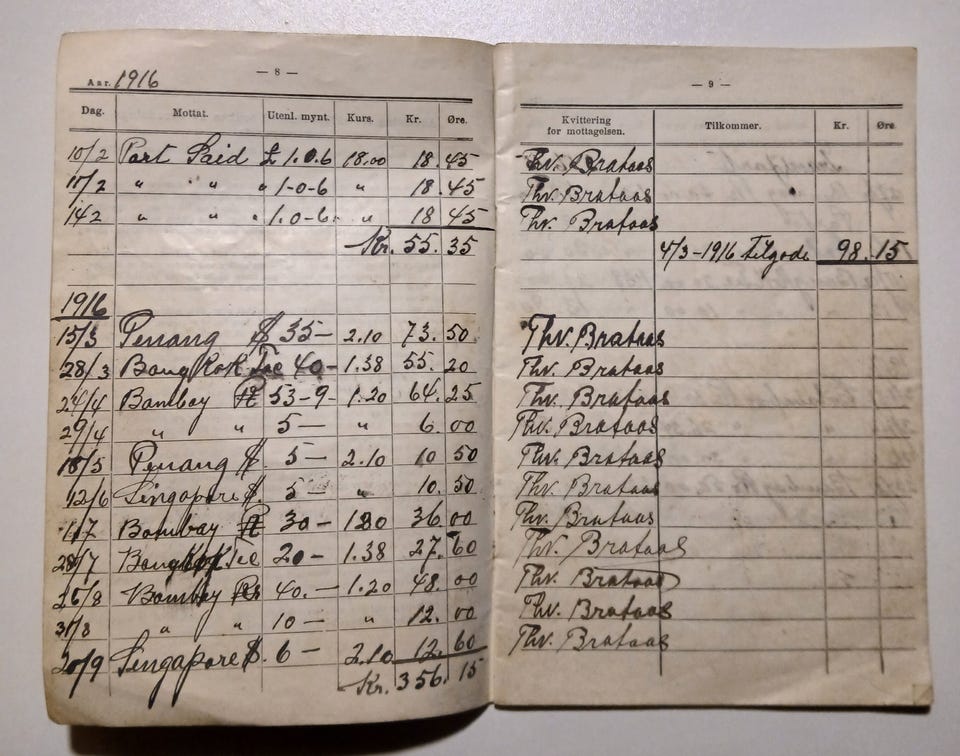 — 8 —
Aar. 1916
Dag. Mottat. Utenl. mynt. Kurs. Kr. Øre.
10/2 Port Said £ 1.0.6 18.00 18.45
11/2 " " " 1-0-6 " 18.45
14/2 " " " 1.0-6 " 18 45
Kr. 55.35
1916
15/3 Penang $ 35- 2.10 73.50
28/3 Bangkok Tic 40- 1.38 55.20
24/4 Bombay R 53-9- 1.20 64.25
29/4 " " 5- " 6.00
18/5 Penang $. 5- 2.10 10 50
12/6 Singapore $. 5- " 10.50
1/7 Bombay R 30- 1.20 36 00
28/7 Bangkok Tic 20- 1.38 27.60
26/8 Bombay Rs 40.- 1.20 48.00
31/8 " " 10- " 12.00
20/9 Singapore $. 6- 2.10 12.60
Kr. 356.15
— 9 —
Kvittering for mottagelsen. Tilkommer. Kr. Øre
Thv. Brataas
Thv. Brataas
Thv. Brataas
4/3-1916 tilgode 98.15
Thv. Brataas
Thv. Brataas
Thv. Brataas
Thv. Brataas
Thv. Brataas
Thv. Brataas
Thv. Brataas
Thv. Brataas
Thv. Brataas
Thv. Brataas
Thv. Brataas